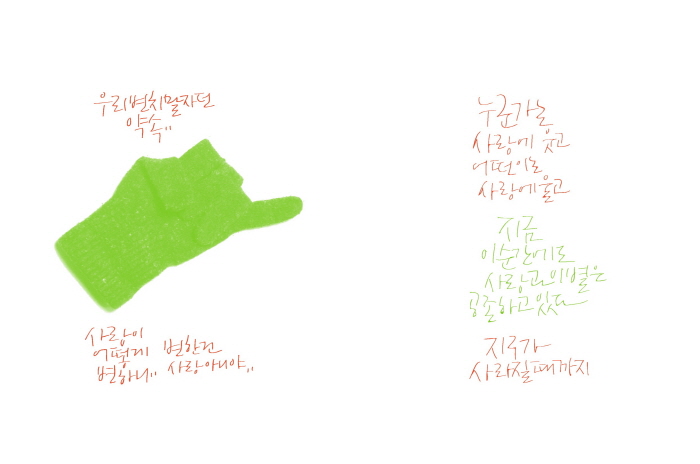 우리변치말자던
약속"
사랑이
어떻게
변하니"
변한건
사랑아니야"
누군가는
사랑에 웃고
어떤이는
사랑에울고
지금
이순간에도
사랑과 이별은
공존하고있다
지구가
사라질때까지